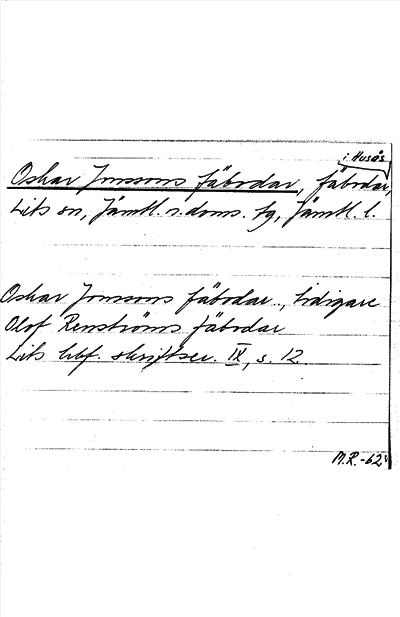 i Husås
Oskar Jonssons fäbodar, fäbodar,
Lits sn, Jämtl. n. doms. tg, Jämtl. l.
Oskar Jonssons fäbodar.., tidigare
Olof Renströms fäbodar
Lits hbf. skriftser. IX, s. 12.
M.R.-62